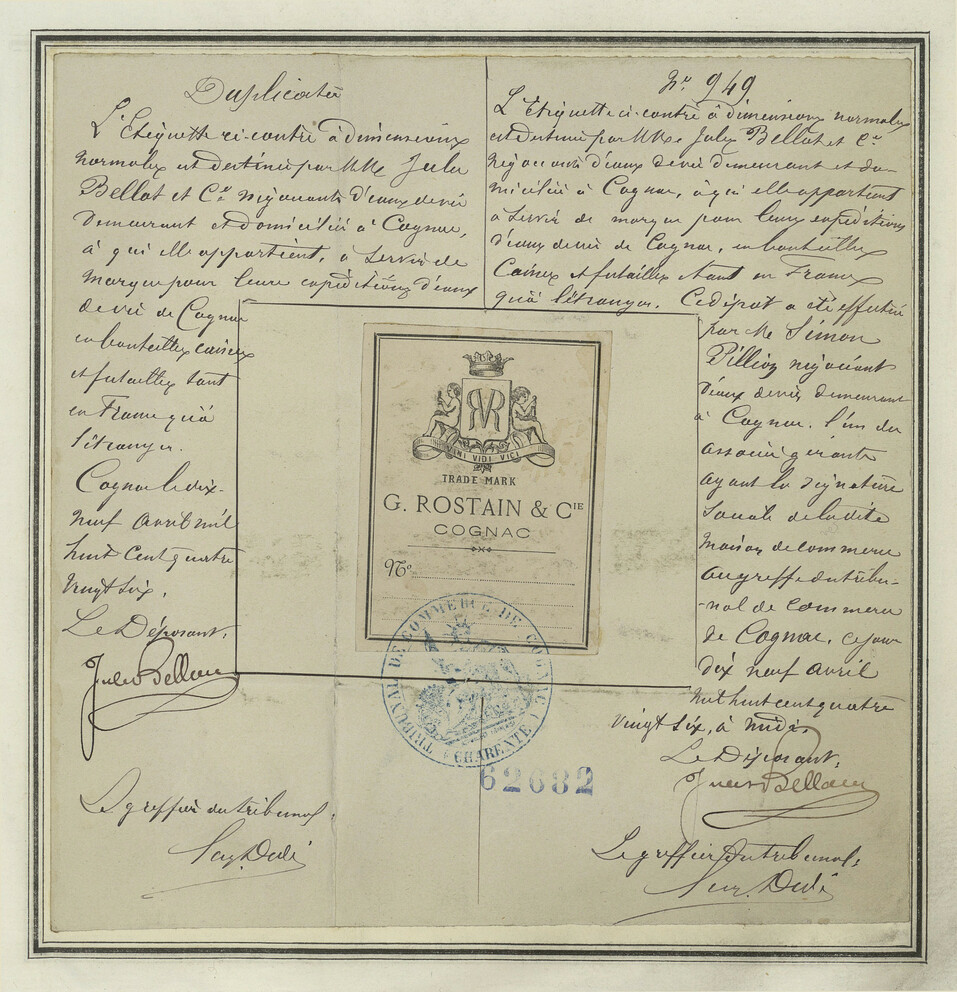 Duplicata
L'Etiquette ci-contre à dimensions
normales est destinée par MM. Jules
Bellot et Cie négociants d'eaux de vie
demeurant et domiciliés à Cognac,
à qui elle appartient, à servir de
marque pour leurs expéditions d'eaux
de vie de Cognac
en bouteilles caisses
et futailles tant
en France qu'à
l'étranger.
Cognac le dix-
neuf avril mil
huit cent quatre
vingt six.
Le Déposant,
Jules Bellot
Le greffier du tribunal,
No 949
L'Etiquette ci-contre à dimensions normales
est destinée par MM. Jules Bellot et Cie
négociants d'eaux de vie demeurant et do-
miciliés à Cognac, à qui elle appartient
à servir de marque pour leurs expéditions
d'eaux de vie de Cognac, en bouteilles
Caisses et futailles et tant en France
qu'à l'étranger. Ce dépôt a été effectué
par M. Simon
négociant
d'eaux de vie demeurant
à Cognac, l'un des
associés gérants
ayant la signature
sociale de la dite
maison de commerce
au greffe du tribu-
-nal de commerce
de Cognac, ce jour
dix neuf avril
mil huit cent quatre
vingt six, à midi.
Le Déposant,
Jules Bellot
Le greffier du tribunal,
VENI VIDI VICI
TRADE MARK
G. ROSTAIN & CIE
COGNAC
No
TRIBUNAL DE COMMERCE DE COGNAC
(CHARENTE)
62682